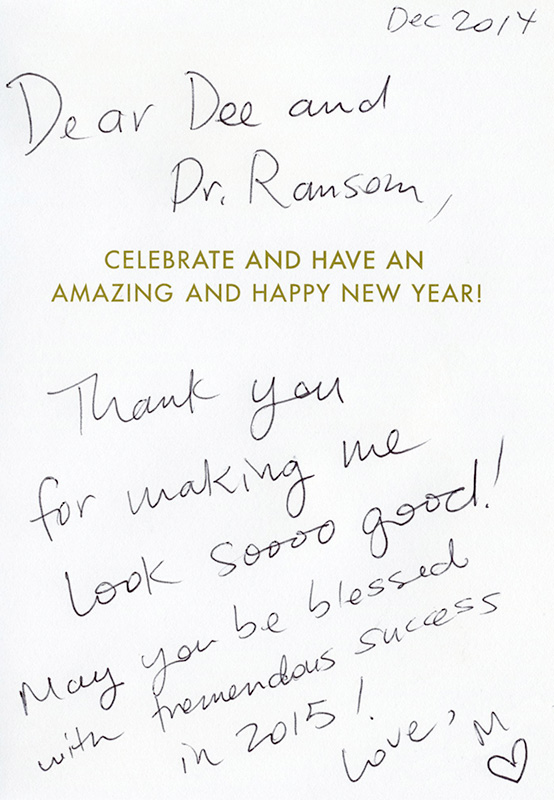 Dec 2014
Dear Dee and
Dr. Ransom,
CELEBRATE AND HAVE AN
AMAZING AND HAPPY NEW YEAR!
Thank you
for making me
look soooo good!
May you be blessed
with tremendous success
in 2015!
Love, M